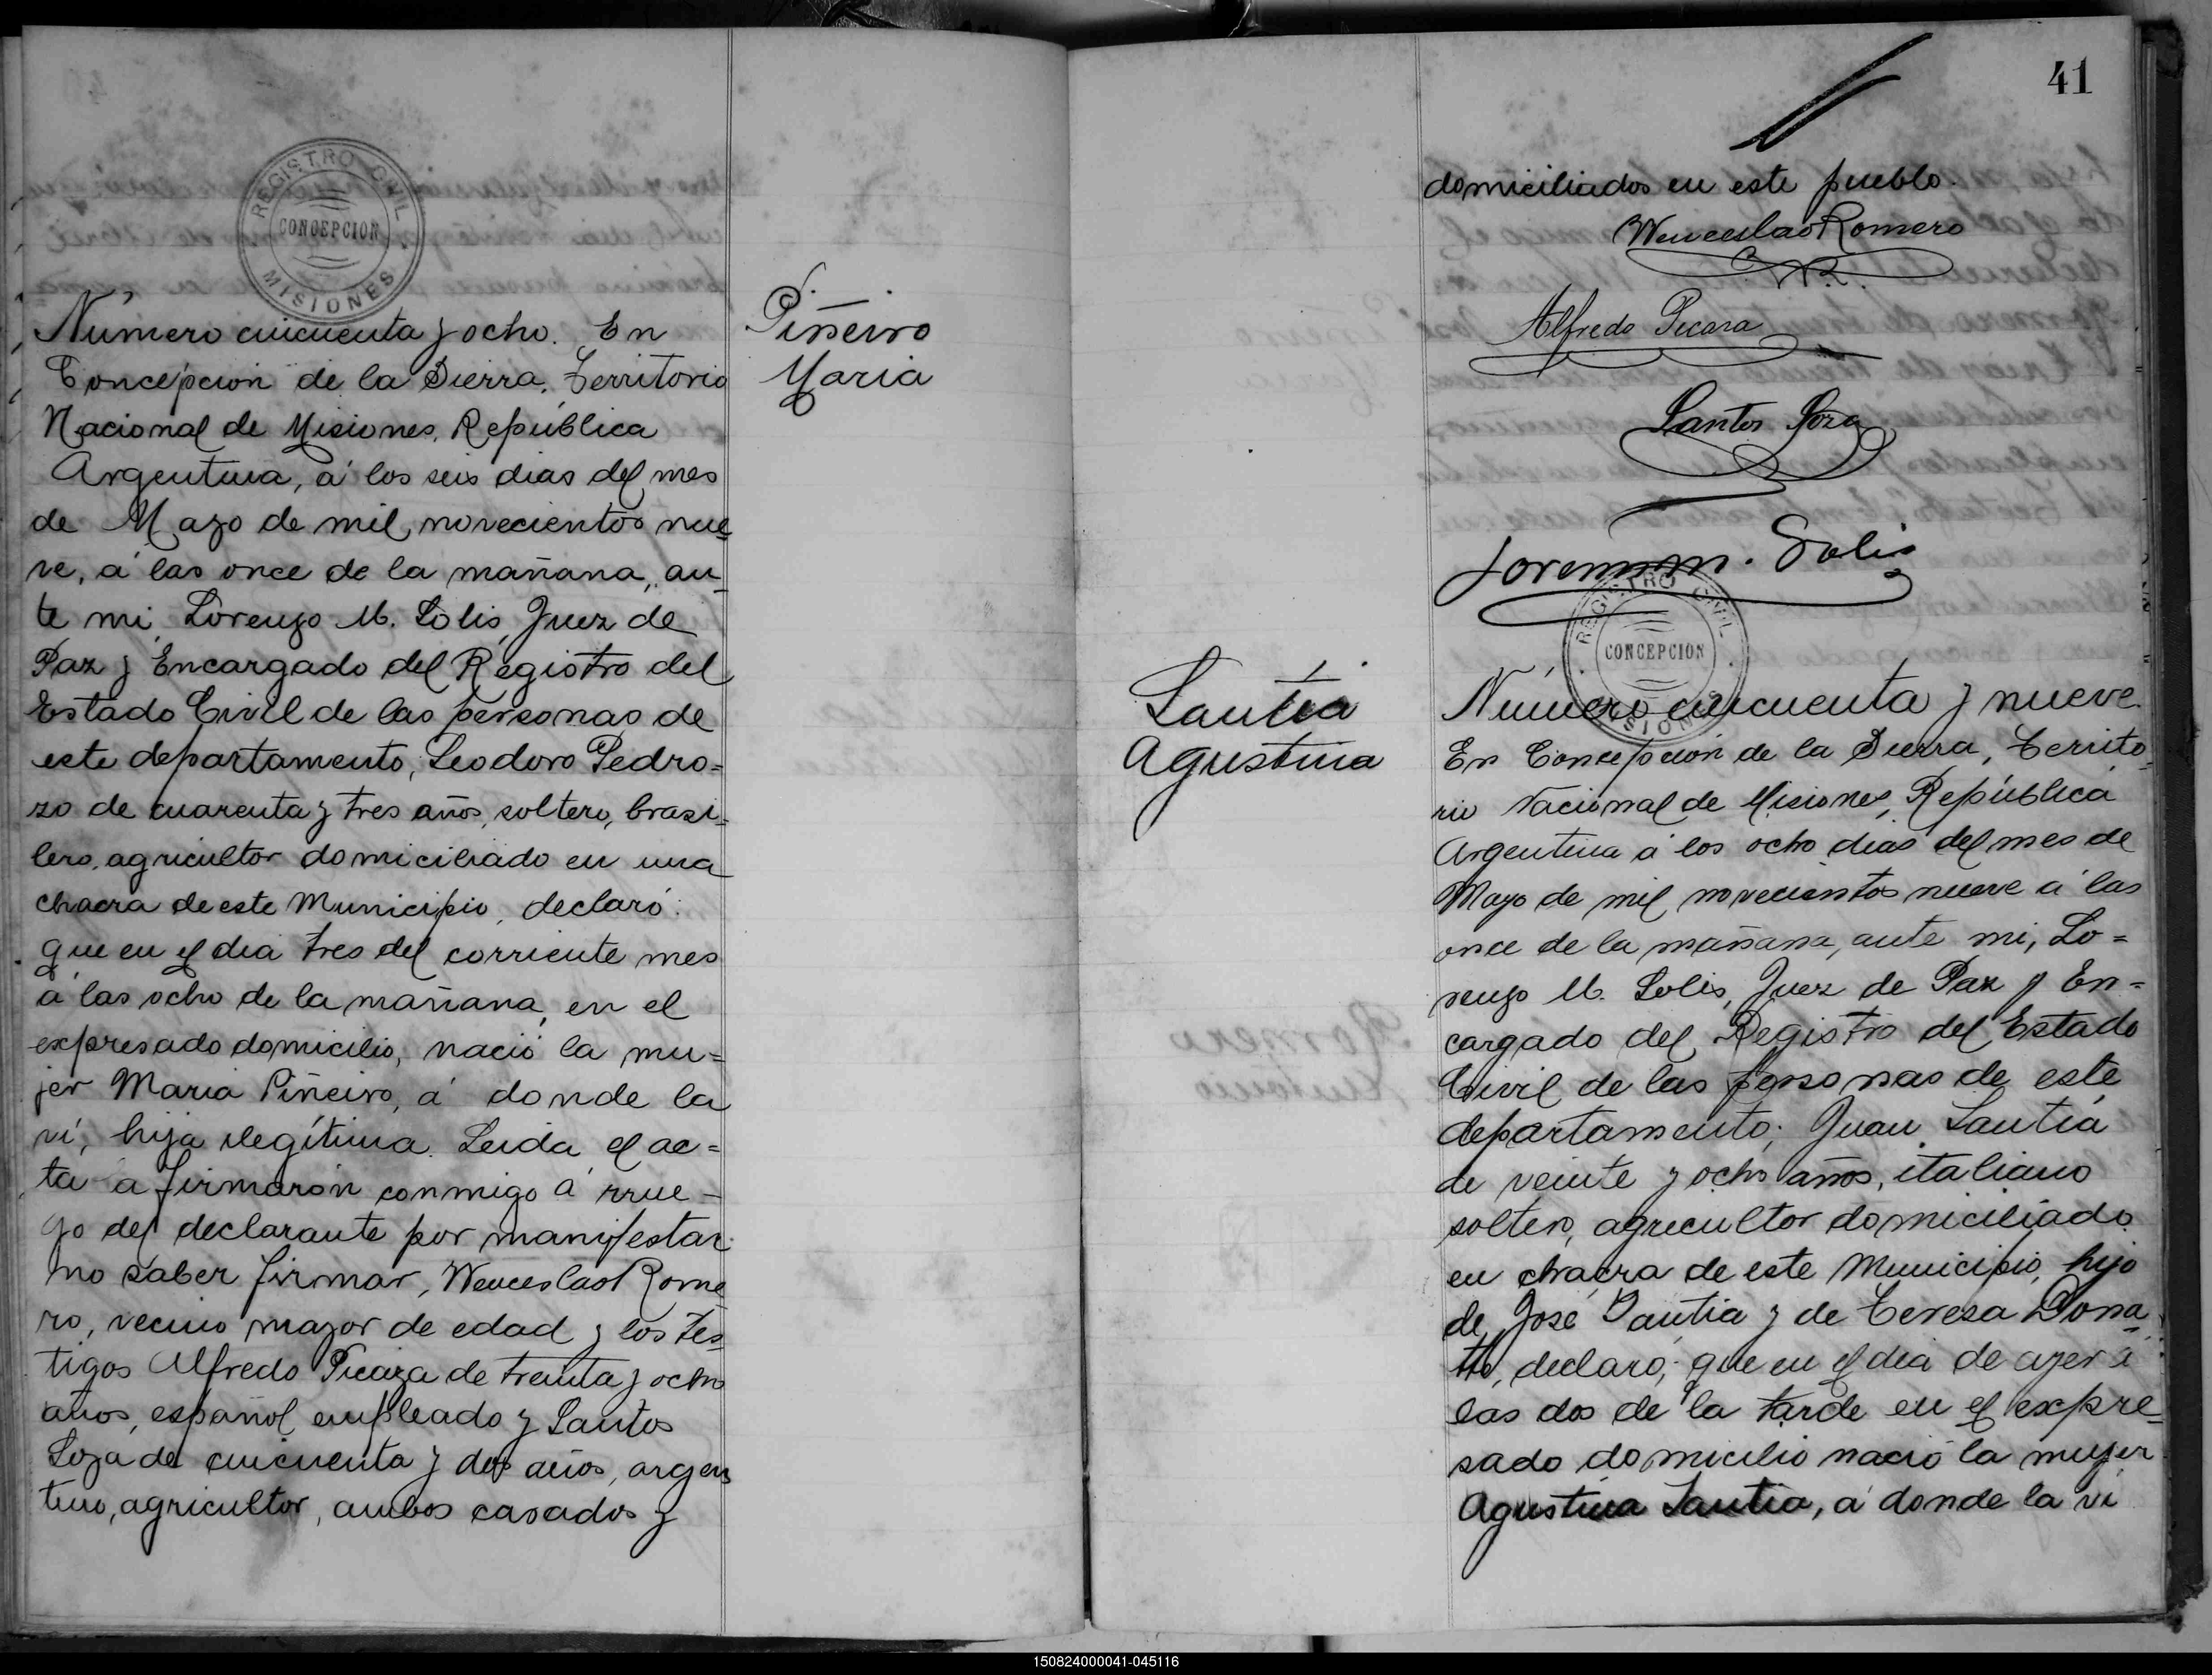 REGISTRO CIVIL
CONCEPCION
MISIONES
Número cuicuenta y ocho. En
Concepcion de la Sierra, Territorio
Nacional de Misiones, República
Argentina, á los seis dias del mes
de Mayo de mil novecientos nue=
ve, á las once de la mañana, an=
te mi Lorenzo M. Solis, Juez de
Paz y Encargado del Registro del
Estado Civil de las personas de
este departamento, Leodoro Pedro=
zo de cuarenta y tres años, soltero, brasi=
lero, agricultor domiciliado en una
chacra de este Municipio, declaró:
que en el dia tres del corriente mes
á las ocho de la mañana, en el
expresado domicilio, nació la mu=
jer Maria Piñeiro, á donde la
ví, hija ilegítima. Leida el ac=
ta a firmarón conmigo á rrue-
go del declarante por manifestar
no saber firmar, Wenceslao Rome
ro, vecino mayor de edad y los tes=
tigos Alfredo Picaza de treinta y ocho
años, español, empleado y Santos
Soza de cuicuenta y dos años, argen
tino, agricultor, ambos casados y
Piñeiro
Maria
41
domiciliados en este pueblo.
Wenceslao Romero
Alfredo Picaza
Santos Soza
Lorenzo M. Solis
REGISTRO CIVIL
CONCEPCION
MISIONES
Santia
Agustina
Número cuicuenta y nueve.
En Concepción de la Sierra, Territo=
rio Nacional de Misiones, República
Argentina á los ocho dias del mes de
Mayo de mil novecientos nueve á las
once de la mañana, ante mi, Lo=
renzo M. Solis, Juez de Paz y En=
cargado del Registro del Estado
Civil de las personas de este
departamento; Juan Santia
de veinte y ocho años, italiano
soltero, agricultor domiciliado
en chacra de este Municipio, hijo
de José Santia y de Teresa Dona=
tto, declaró; que en el dia de ayer á
las dos de la tarde en el expre=
sado domicilio nació la mujer
Agustina Santia, á donde la ví
150824000041-045116